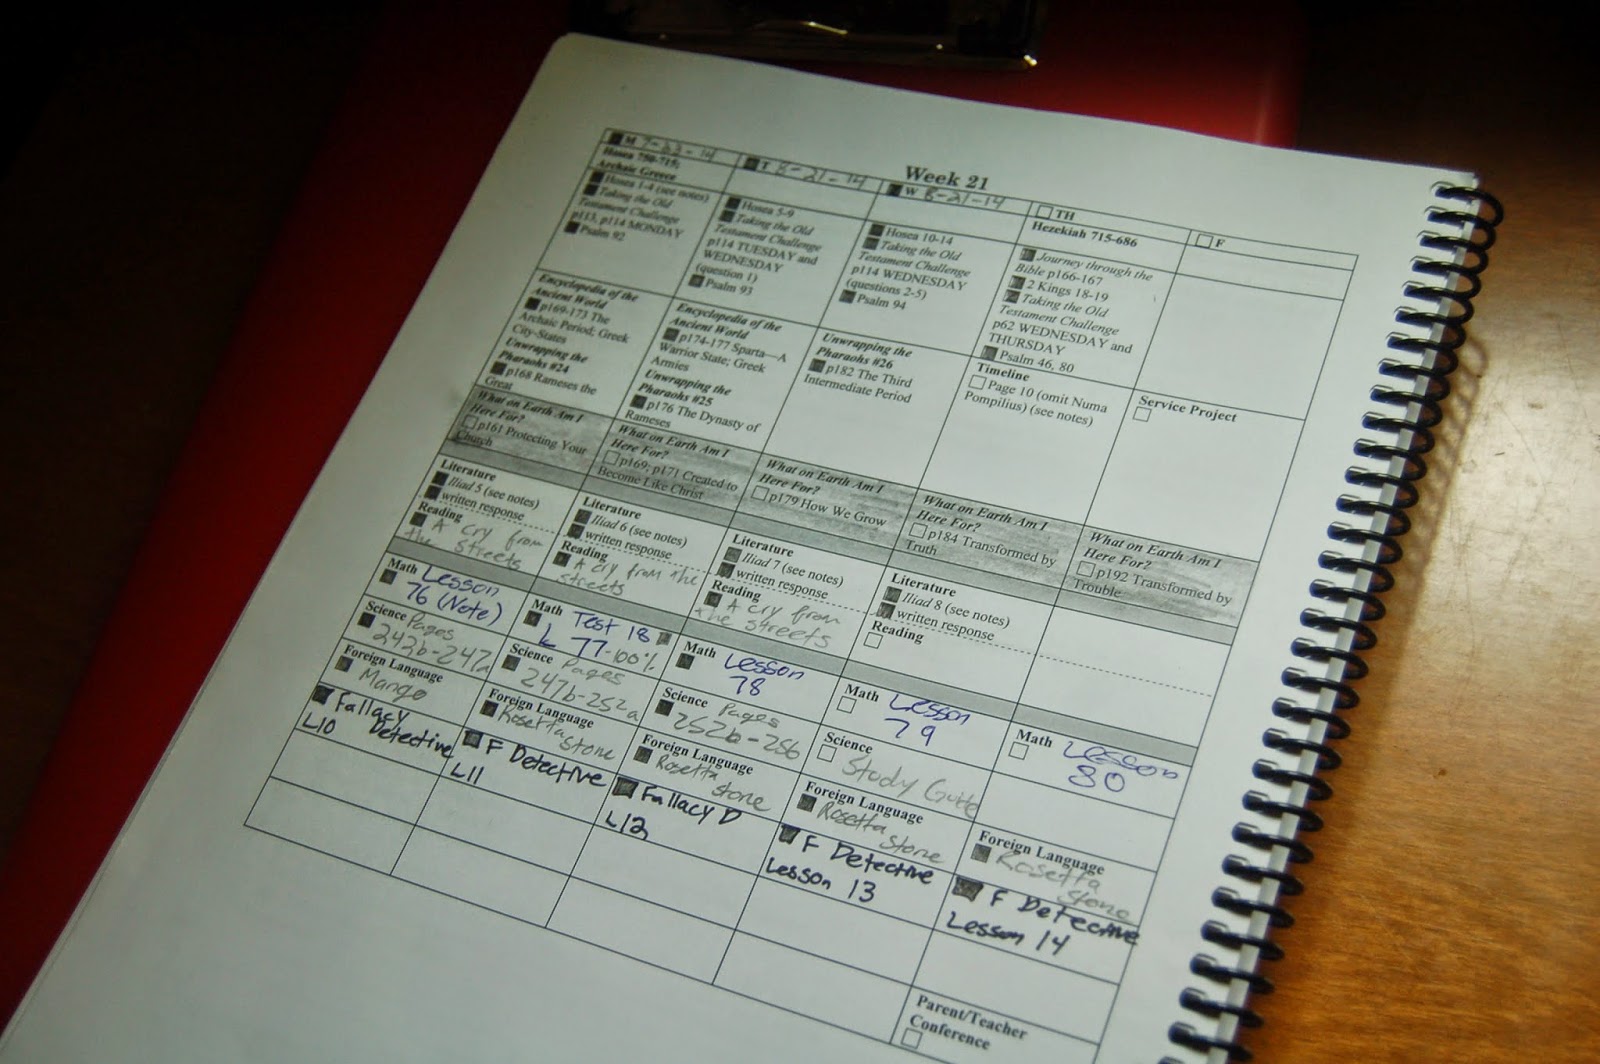 Week 21
M 7-23-14
Hosea 750-715;
Archaic Greece
Hosea 1-4 (see notes)
Taking the Old
Testament Challenge
p113, p114 MONDAY
Psalm 92
Encyclopedia of the
Ancient World
p169-173 The
Archaic Period; Greek
City-States
Unwrapping the
Pharaohs #24
p168 Rameses the
Great
What on Earth Am I
Here For?
p161 Protecting Your
Church
Literature
Iliad 5 (see notes)
written response
Reading
A cry from
the streets
Math Lesson
76 (Note)
Science Pages
242b-247a
Foreign Language
Mango
Fallacy
Detective
L10
T 8-21-14
Hosea 5-9
Taking the Old
Testament Challenge
p114 TUESDAY and
WEDNESDAY
(question 1)
Psalm 93
Encyclopedia of the
Ancient World
p174-177 Sparta—A
Warrior State; Greek
Armies
Unwrapping the
Pharaohs #25
p176 The Dynasty of
Rameses
What on Earth Am I
Here For?
p169; p171 Created to
Become Like Christ
Literature
Iliad 6 (see notes)
written response
Reading
A cry from the
streets
Math Test 18
L 77-100%
Science Pages
247b-252a
Foreign Language
Rosetta
Stone
F Detective
L11
W 8-21-14
Hosea 10-14
Taking the Old
Testament Challenge
p114 WEDNESDAY
(questions 2-5)
Psalm 94
Unwrapping the
Pharaohs #26
p182 The Third
Intermediate Period
What on Earth Am I
Here For?
p179 How We Grow
Literature
Iliad 7 (see notes)
written response
Reading
A cry from
the streets
Math Lesson
78
Science Pages
252b-256
Foreign Language
Rosetta
stone
Fallacy D
L12
TH
Hezekiah 715-686
Journey through the
Bible p166-167
2 Kings 18-19
Taking the Old
Testament Challenge
p62 WEDNESDAY and
THURSDAY
Psalm 46, 80
Timeline
Page 10 (omit Numa
Pompilius) (see notes)
What on Earth Am I
Here For?
p184 Transformed by
Truth
Literature
Iliad 8 (see notes)
written response
Reading
Math Lesson
79
Science
Study Guide
Foreign Language
Rosetta
stone
F Detective
Lesson 13
F
Service Project
What on Earth Am I
Here For?
p192 Transformed by
Trouble
Math Lesson
80
Foreign Language
Rosetta
stone
F Detective
Lesson 14
Parent/Teacher
Conference